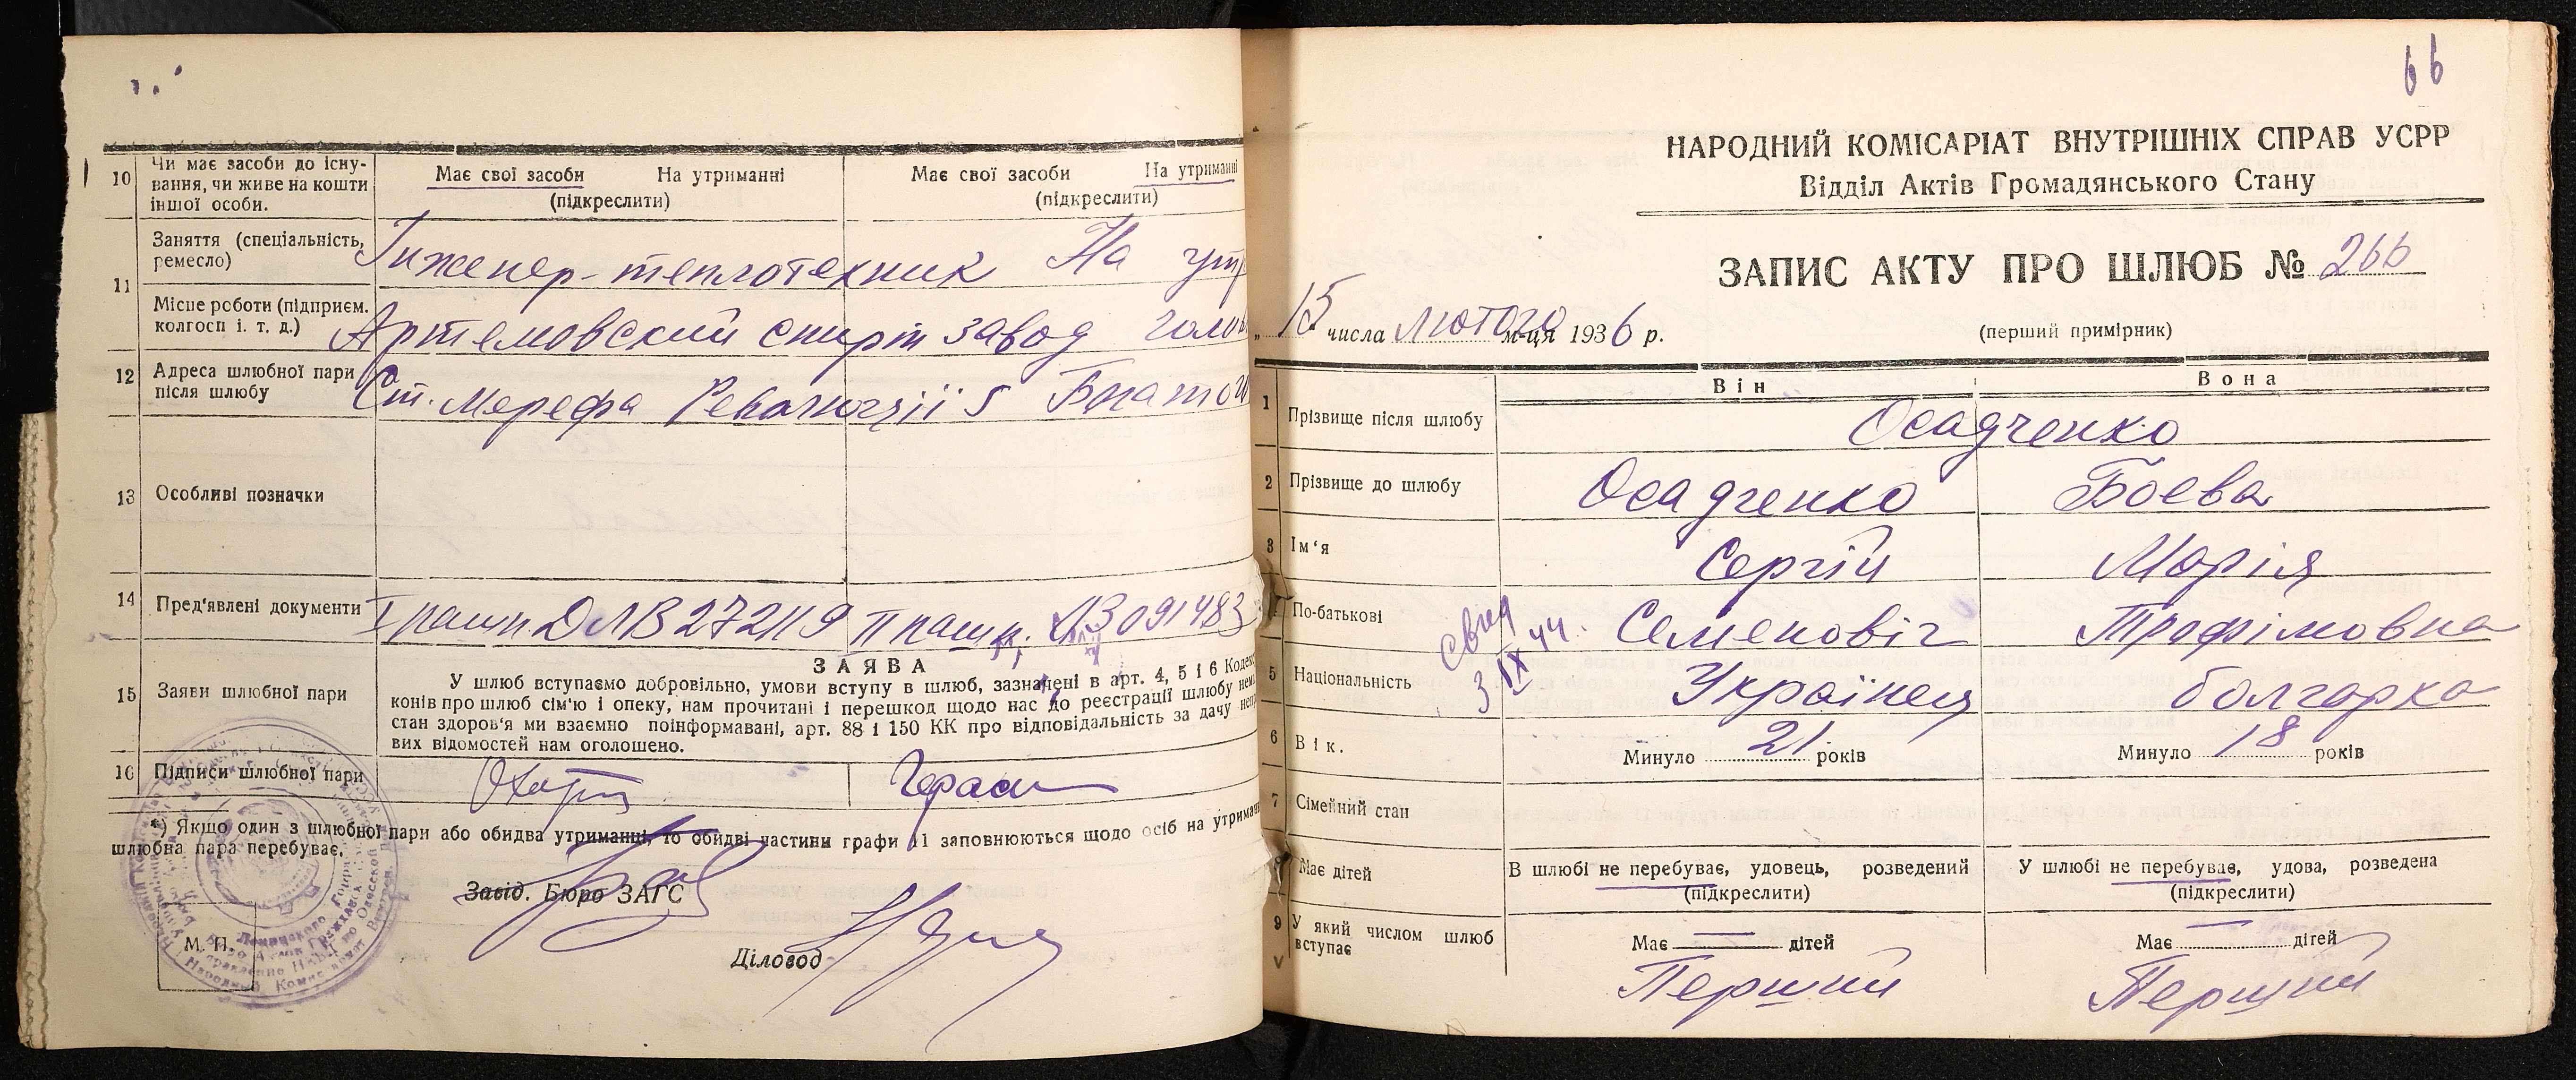 10 Чи має засоби до існування, чи живе на кошти іншої особи.
Має свої засоби На утриманні
(підкреслити)
Має свої засоби На утриманні
(підкреслити)
11 Заняття (спеціальність, ремесло)
Інженер-теплотехник На утр
Місце роботи (підприєм. колгосп і. т. д.)
Артемовский спирт завод
12 Адреса шлюбної пари після шлюбу
Ст. Мерефа Революції 5
13 Особливі позначки
14 Пред'явлені документи
I пашп. ДЛВ 272119 II пашп. 091483
ЗАЯВА
15 Заяви шлюбної пари
У шлюб вступаємо добровільно, умови вступу в шлюб, зазначені в арт. 4, 5 і 6 Кодек
конів про шлюб сім'ю і опеку, нам прочитані і перешкод щодо нас до реєстрації шлюбу нема
стан здоров'я ми взаємно поінформавані, арт. 88 і 150 КК про відповідальність за дачу непр
вих відомостей нам оголошено.
16 Підписи шлюбної пари
*) Якщо один з шлюбної пари або обидва утриманці, то обидві частини графи 11 заповнюються щодо осіб на утриман
шлюбна пара перебуває.
Завід. Бюро ЗАГС
М. П.
Діловод
66
НАРОДНИЙ КОМІСАРІАТ ВНУТРІШНІХ СПРАВ УСРР
Відділ Актів Громадянського Стану
ЗАПИС АКТУ ПРО ШЛЮБ № 266
„ 15 числа Лютого м-ця 1936 р.
(перший примірник)
Він Вона
1 Прізвище після шлюбу Осадченко
2 Прізвище до шлюбу Осадченко Боєва
3 Ім'я Сергій Марія
По-батькові Семеновіч Трофімовна
свид 3 IX 44.
5 Національність Українец болгарка
6 Вік. Минуло 21 років Минуло 18 років
7 Сімейний стан
В шлюбі не перебуває, удовець, розведений
(підкреслити)
У шлюбі не перебуває, удова, розведена
(підкреслити)
Має дітей
Має — дітей
Має — дітей
9 У який числом шлюб вступає
Перший Перший